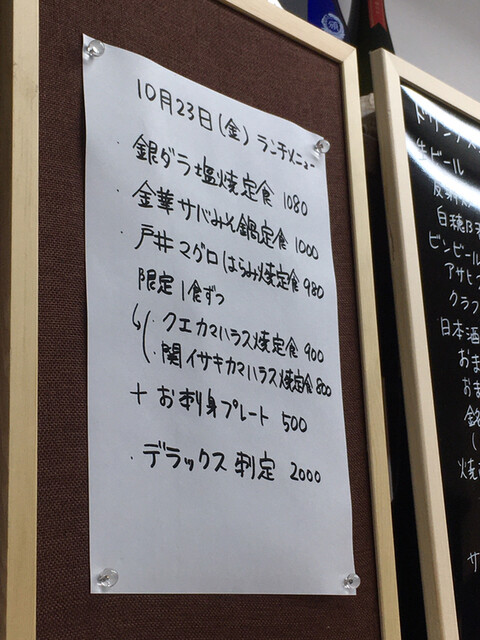 10月23日(金) ランチメニュー
・銀ダラ塩焼定食 1080
・金華サバみそ鍋定食 1000
・戸井マグロはらみ焼定食 980
限定1食ずつ
・クエカマハラス焼定食 900
・関イサキカマハラス焼定食 800
+ お刺身プレート 500
・デラックス刺定 2000
ドリンク
生ビール
白穂乃
ビンビール
アサヒ
クラフ
日本酒
おま
おま
銘
(
焼
サ